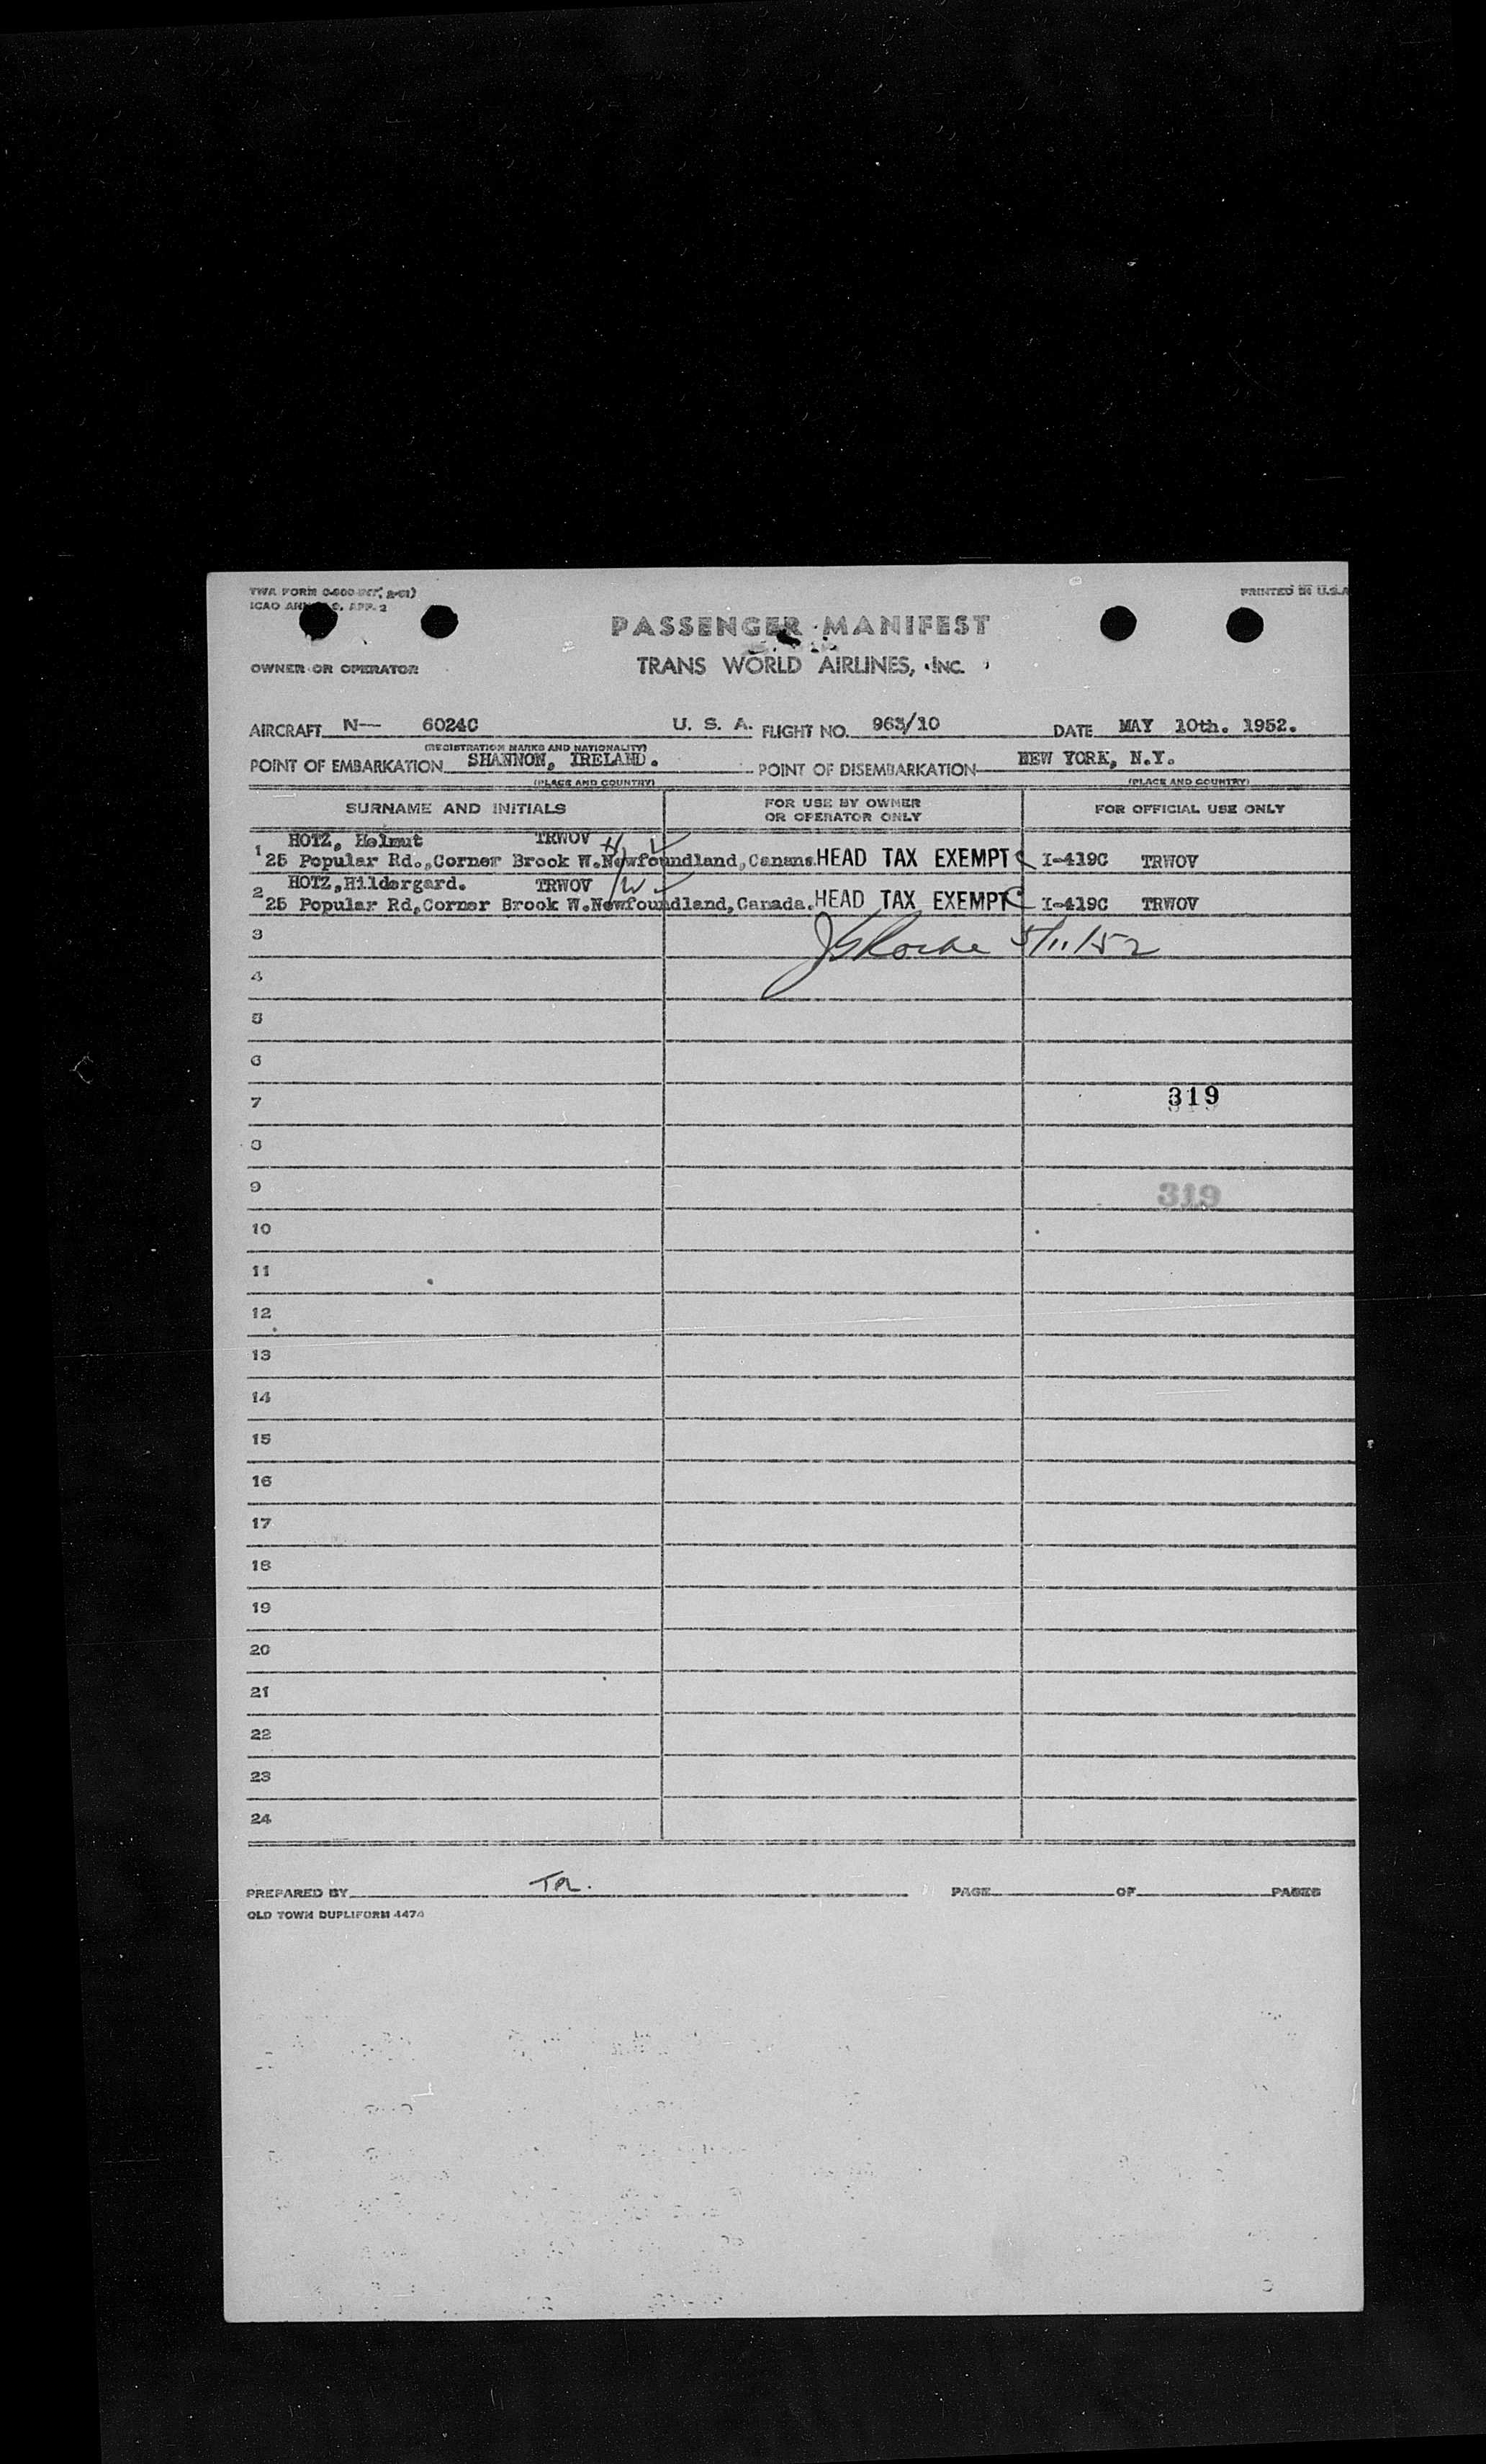 PRINTED IN U.S.A
PASSENGER MANIFEST
OWNER OR OPERATOR TRANS WORLD AIRLINES, INC.
AIRCRAFT N— 6024C U. S. A. FLIGHT NO. 963/10 DATE MAY 10th. 1952.
(REGISTRATION MARKS AND NATIONALITY)
POINT OF EMBARKATION SHANNON, IRELAND. POINT OF DISEMBARKATION NEW YORK, N.Y.
(PLACE AND COUNTRY) (PLACE AND COUNTRY)
SURNAME AND INITIALS FOR USE BY OWNER OR OPERATOR ONLY FOR OFFICIAL USE ONLY
1 HOTZ, Helmut TRWOV H
25 Popular Rd.,Corner Brook W.Newfoundland,Canana. HEAD TAX EXEMPT I-419C TRWOV
2 HOTZ,Hildergard. TRWOV W
25 Popular Rd,Corner Brook W.Newfoundland,Canada. HEAD TAX EXEMPT I-419C TRWOV
3 5/11/52
4
5
6
7 319
8
9 319
10
11
12
13
14
15
16
17
18
19
20
21
22
23
24
PREPARED BY PAGE OF PAGES
OLD TOWN DUPLIFORM 4474